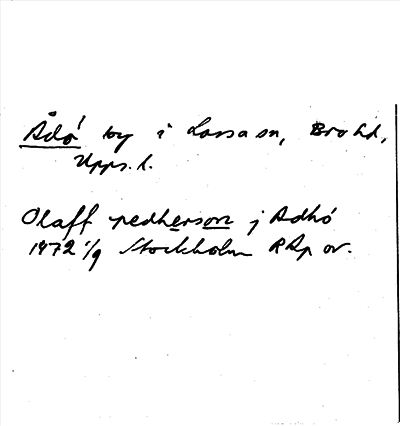 Ådö by i Lossa sn, Bro hd,
Upps. l.
Olaff pedherson j Adhö
1472 1/9 Stockholm RAp or.